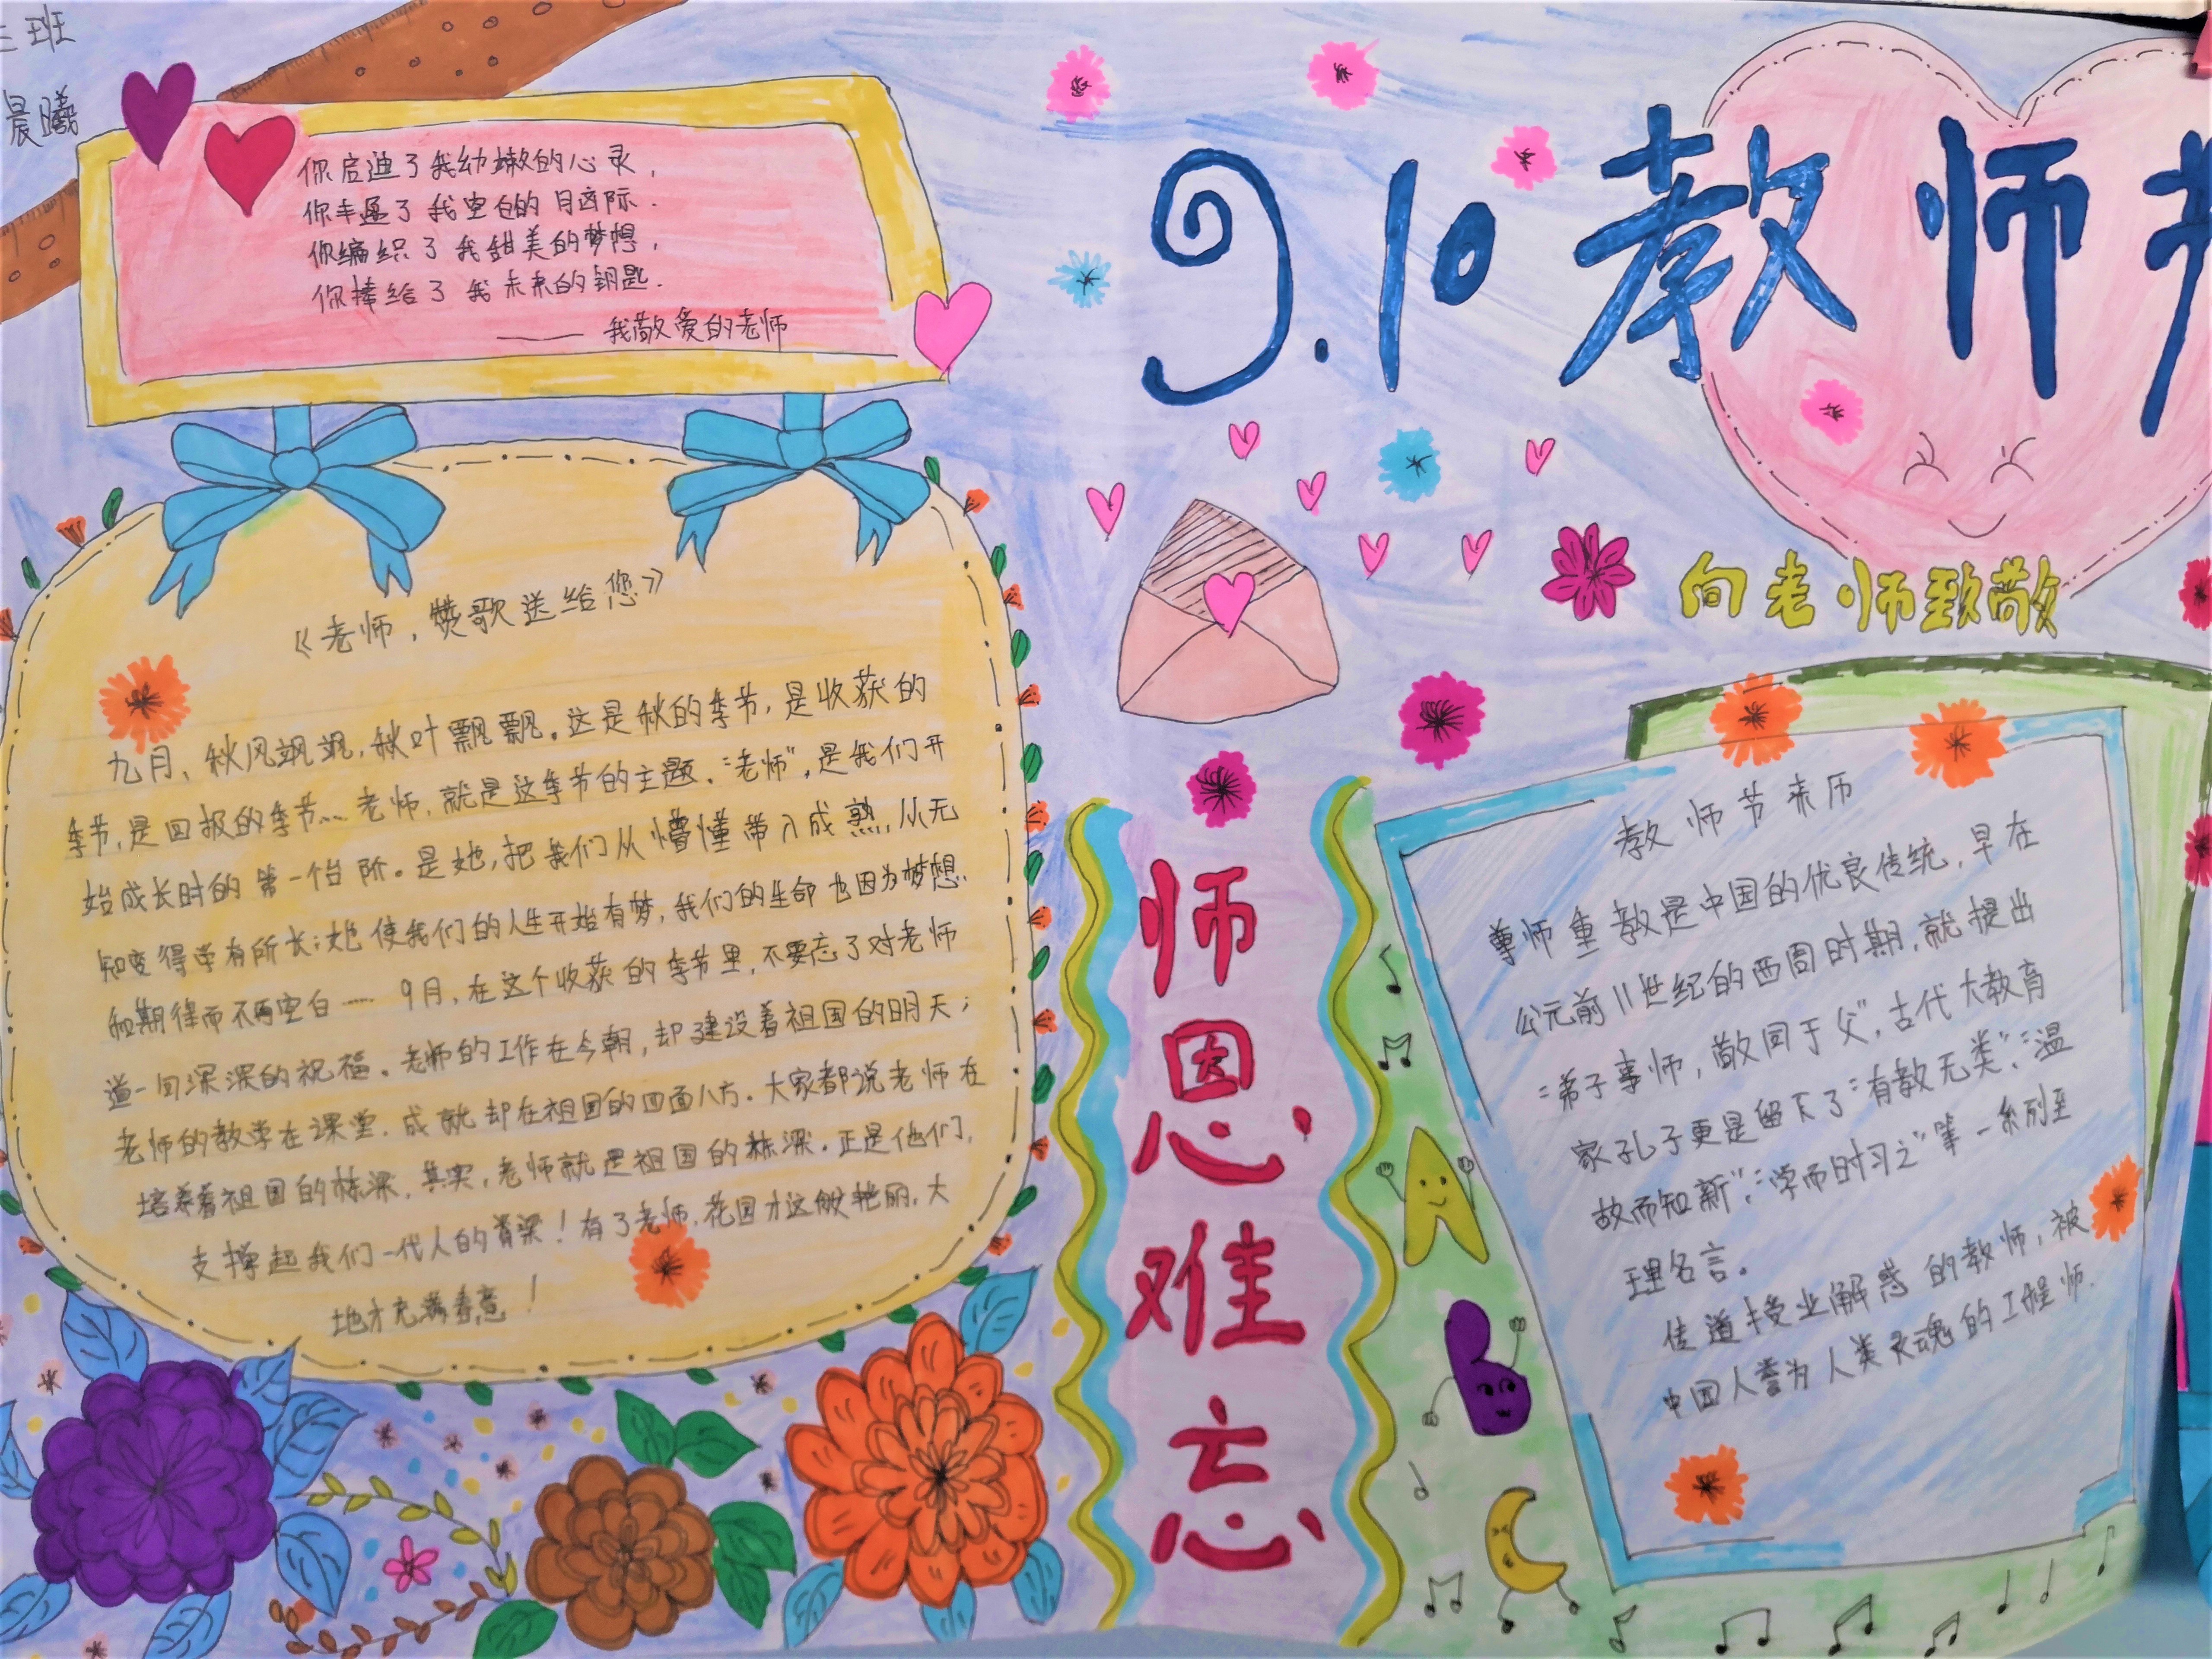 三班
晨曦
你启迪了我幼嫩的心灵,
你丰盈了我空白的目际.
你编织了我甜美的梦想,
你捧给了我未来的钥匙.
——我敬爱的老师
9.10教师
向老师致敬
《老师,赞歌送给您》
九月,秋风飒飒,秋叶飘飘。这是秋的季节,是收获的
季节,是回报的季节……老师,就是这季节的主题.“老师”,是我们开
始成长时的第一个台阶。是她,把我们从懵懂带入成熟,从无
知变得学有所长;她使我们的人生开始有梦,我们的生命也因为梦想
和期待而不再空白……9月,在这个收获的季节里,不要忘了对老师
道一句深深的祝福。老师的工作在今朝,却建设着祖国的明天;
老师的教学在课堂,成就却在祖国的四面八方。大家都说老师在
培养着祖国的栋梁,其实,老师就是祖国的栋梁.正是他们,
支撑起我们一代人的脊梁!有了老师,花园才这般艳丽,大
地才充满春意!
师恩难忘
教师节来历
尊师重教是中国的优良传统,早在
公元前11世纪的西周时期,就提出
“弟子事师,敬同于父”,古代大教育
家孔子更是留下了“有教无类”,“温
故而知新”,“学而时习之”等一系列至
理名言。
传道授业解惑的教师,被
中国人誉为人类灵魂的工程师.